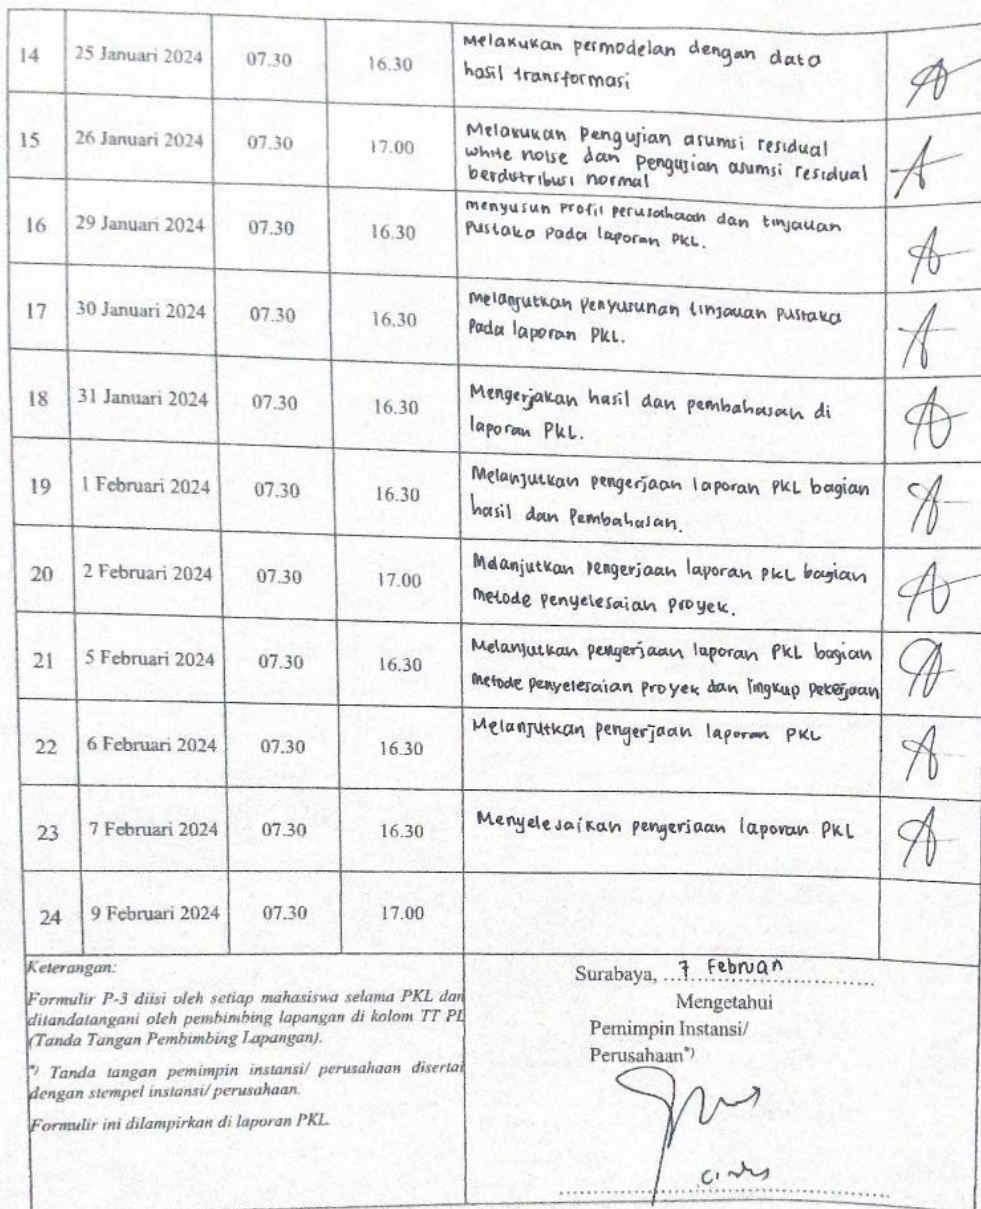 14 25 Januari 2024 07.30 16.30 Melakukan permodelan dengan data
hasil transformasi
15 26 Januari 2024 07.30 17.00 Melakukan Pengujian asumsi residual
white noise dan pengujian asumsi residual
berdistribusi normal
16 29 Januari 2024 07.30 16.30 menyusun profil perusahaan dan tinjauan
Pustaka Pada laporan PKL.
17 30 Januari 2024 07.30 16.30 melanjutkan Penyusunan tinjauan Pustaka
Pada laporan PKL.
18 31 Januari 2024 07.30 16.30 Mengerjakan hasil dan pembahasan di
laporan PKL.
19 1 Februari 2024 07.30 16.30 Melanjutkan pengerjaan laporan PKL bagian
hasil dan Pembahasan.
20 2 Februari 2024 07.30 17.00 Melanjutkan pengerjaan laporan PKL bagian
Metode penyelesaian proyek.
21 5 Februari 2024 07.30 16.30 Melanjutkan pengerjaan laporan PKL bagian
metode penyelesaian proyek dan lingkup pekerjaan
22 6 Februari 2024 07.30 16.30 Melanjutkan pengerjaan laporan PKL
23 7 Februari 2024 07.30 16.30 Menyelesaikan pengerjaan laporan PKL
24 9 Februari 2024 07.30 17.00
Keterangan:
Formulir P-3 diisi oleh setiap mahasiswa selama PKL dan
ditandatangani oleh pembimbing lapangan di kolom TT PL
(Tanda Tangan Pembimbing Lapangan).
*) Tanda tangan pemimpin instansi/ perusahaan disertai
dengan stempel instansi/ perusahaan.
Formulir ini dilampirkan di laporan PKL.
Surabaya, 7 Februari
Mengetahui
Pemimpin Instansi/
Perusahaan*)